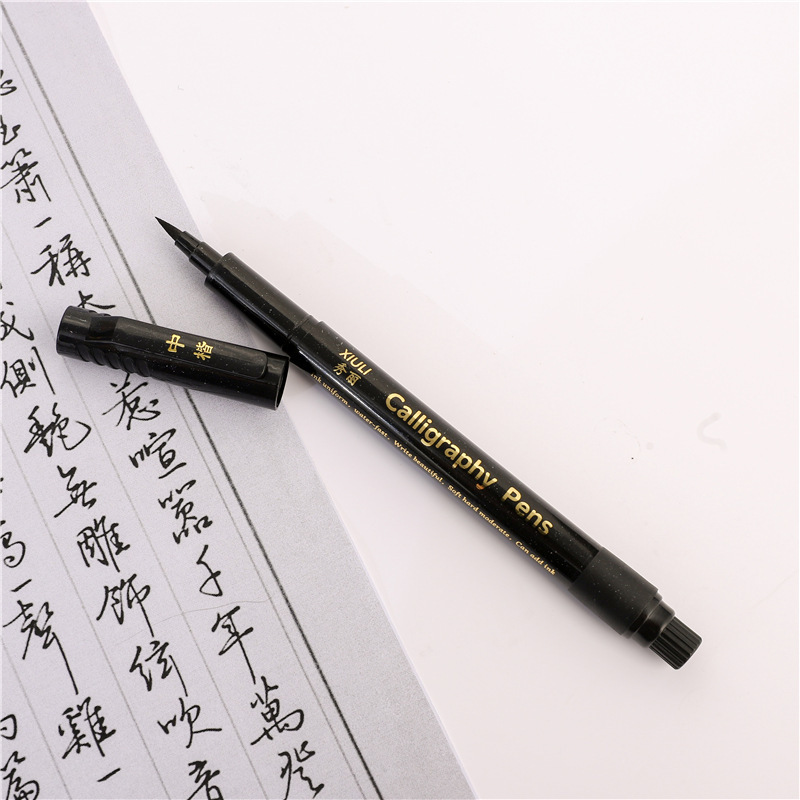 XIULI
秀丽
Calligraphy Pens
Ink uniform, water-fast. Write beautiful. Soft hard moderate. Can add ink
中楷
簫一稱
惹喧噐千年萬登
側艷無雕飾絃吹音
一聲雞一
篇